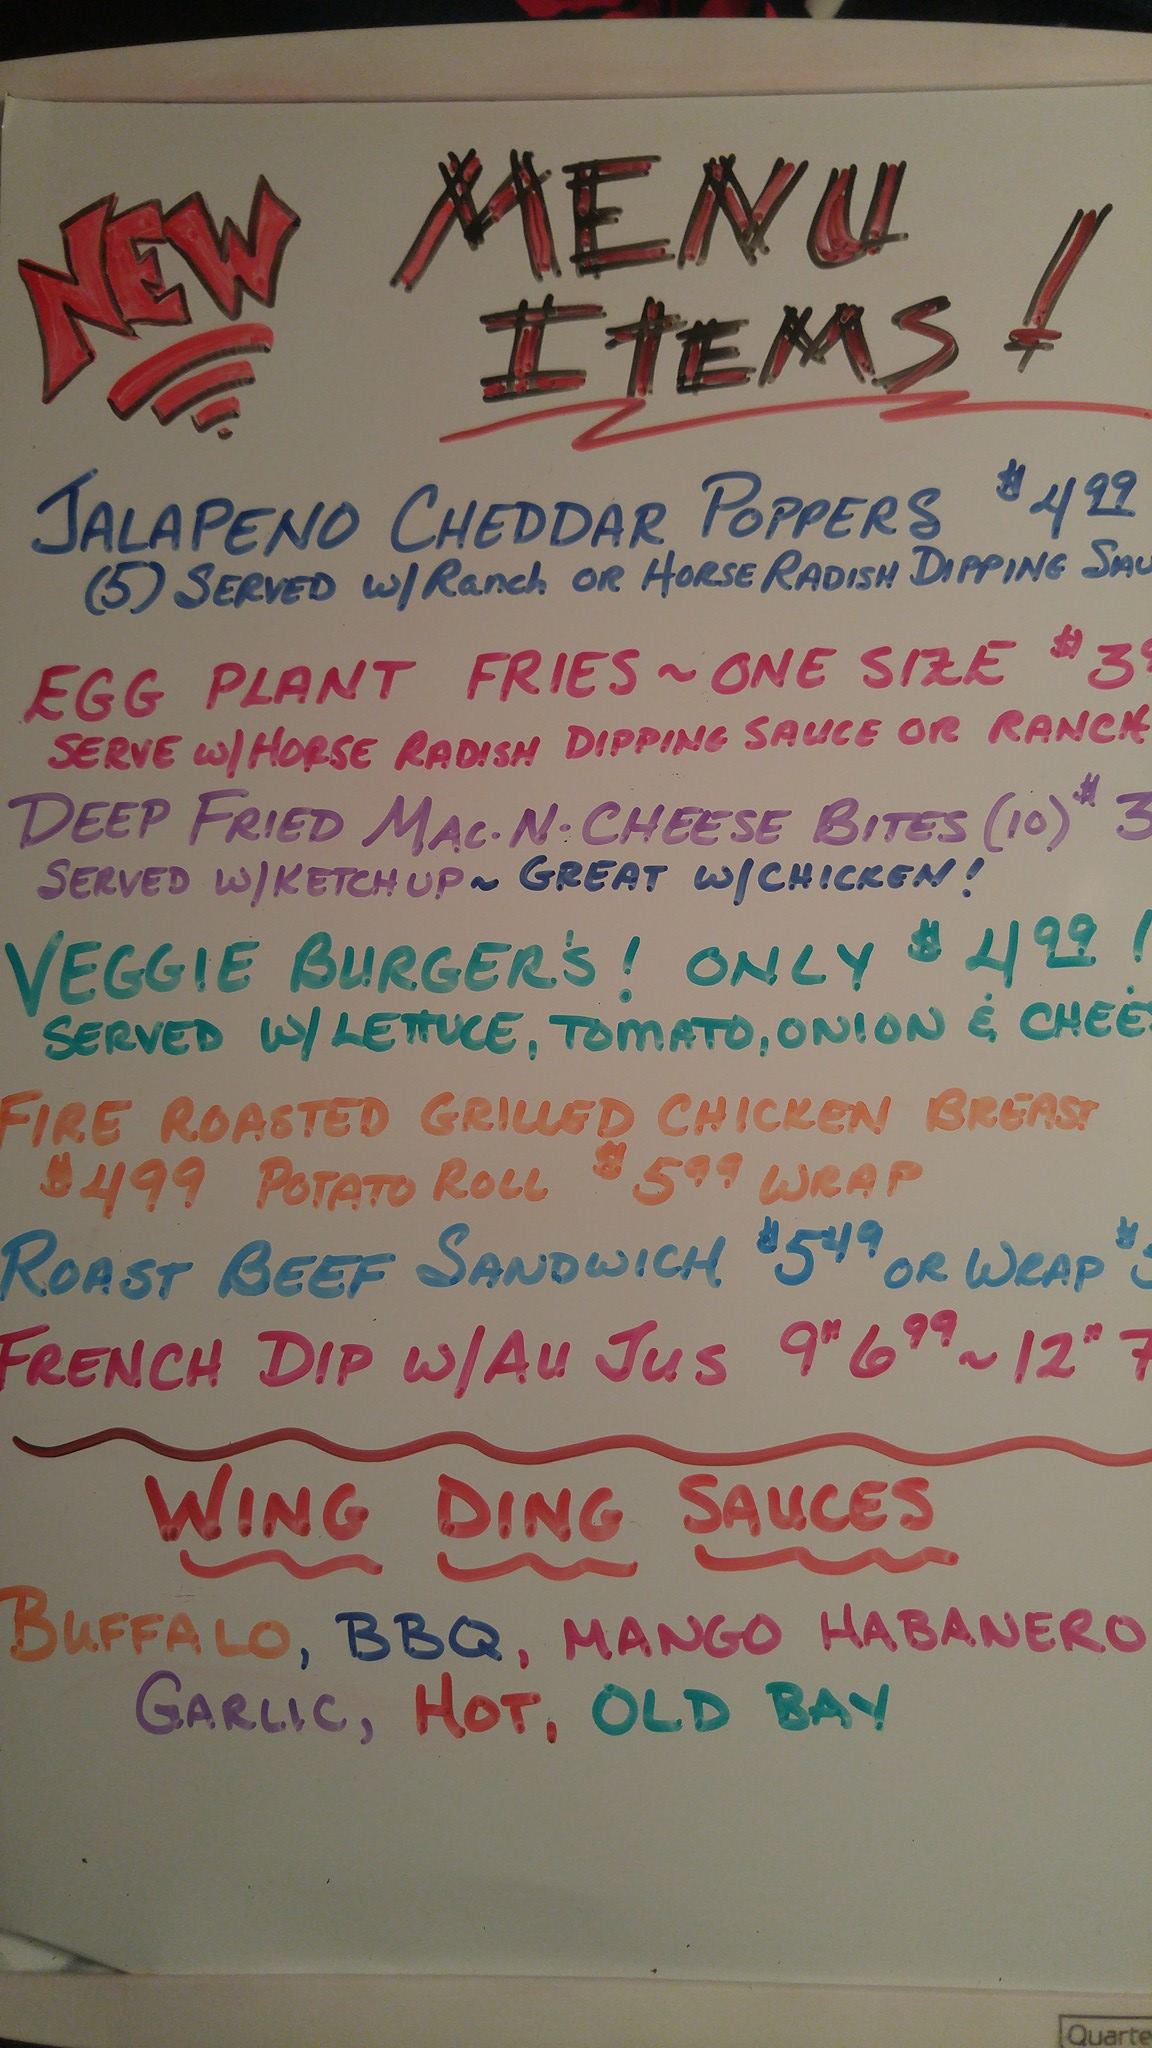 NEW MENU
ITEMS!
JALAPENO CHEDDAR POPPERS $4.99
(5) SERVED w/Ranch OR HORSE RADISH DIPPING SAU
EGG PLANT FRIES ~ ONE SIZE $3
SERVE w/HORSE RADISH DIPPING SAUCE OR RANCH
DEEP FRIED MAC-N-CHEESE BITES (10) $3
SERVED W/KETCHUP ~ GREAT W/CHICKEN!
VEGGIE BURGER'S! ONLY $4.99!
SERVED W/LETTUCE, TOMATO, ONION & CHEES
FIRE ROASTED GRILLED CHICKEN BREAST
$4.99 POTATO ROLL $5.99 WRAP
ROAST BEEF SANDWICH $5.49 OR WRAP $5
FRENCH DIP W/AU JUS 9" 6.99 ~ 12" 7
WING DING SAUCES
BUFFALO, BBQ, MANGO HABANERO
GARLIC, HOT, OLD BAY
Quarte